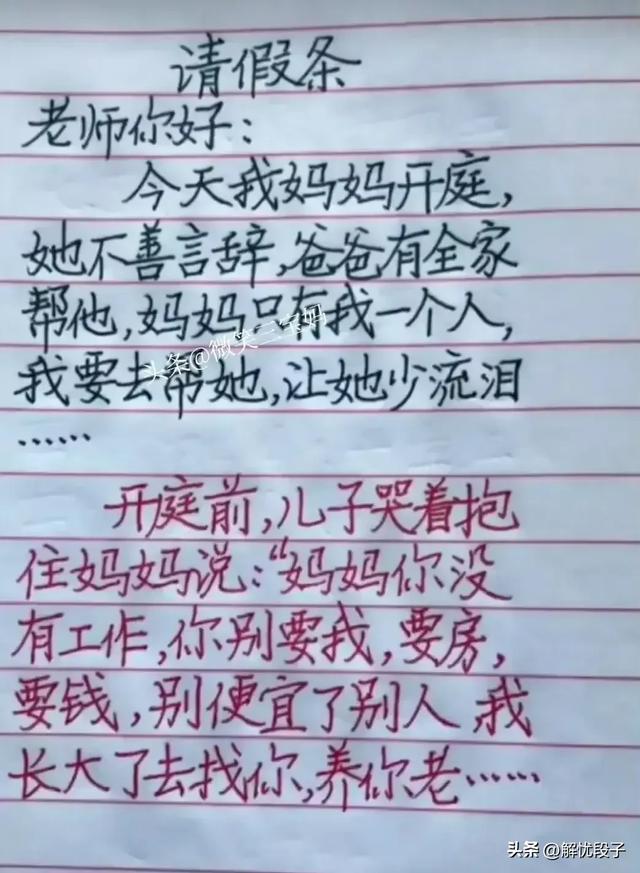 请假条
老师你好：
今天我妈妈开庭，
她不善言辞，爸爸有全家
帮他，妈妈只有我一个人，
头条@微笑三宝妈
我要去帮她，让她少流泪
……
开庭前，儿子哭着抱
住妈妈说：“妈妈你没
有工作，你别要我，要房，
要钱，别便宜了别人，我
长大了去找你，养你老……
头条 @解忧段子